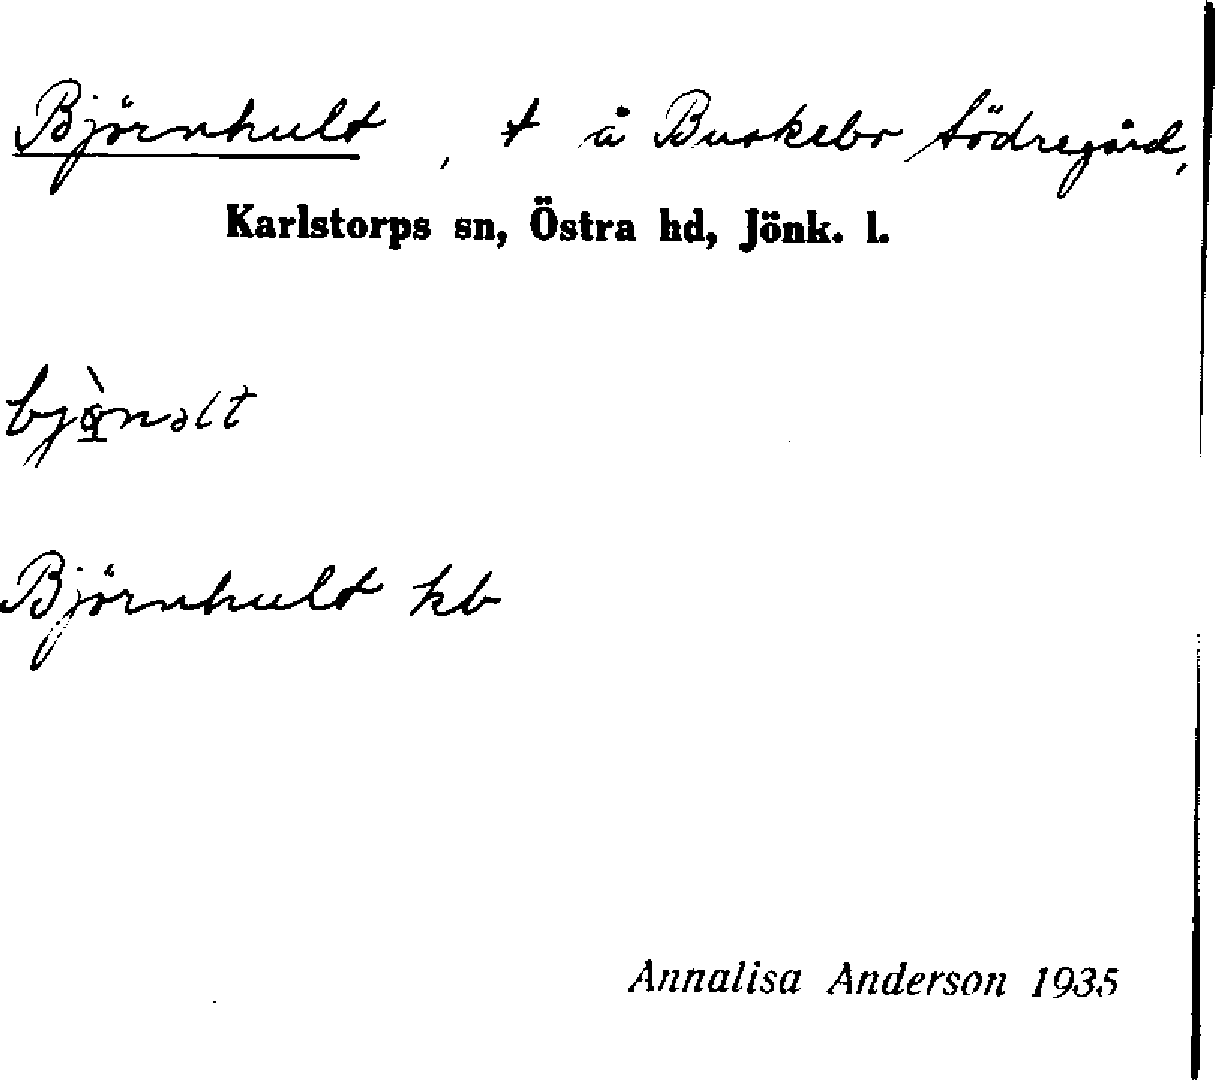 Björnhult, t å Buskebo Södregård,
Karlstorps sn, Östra hd, Jönk. l.
Björnhult kb
Annalisa Anderson 1935